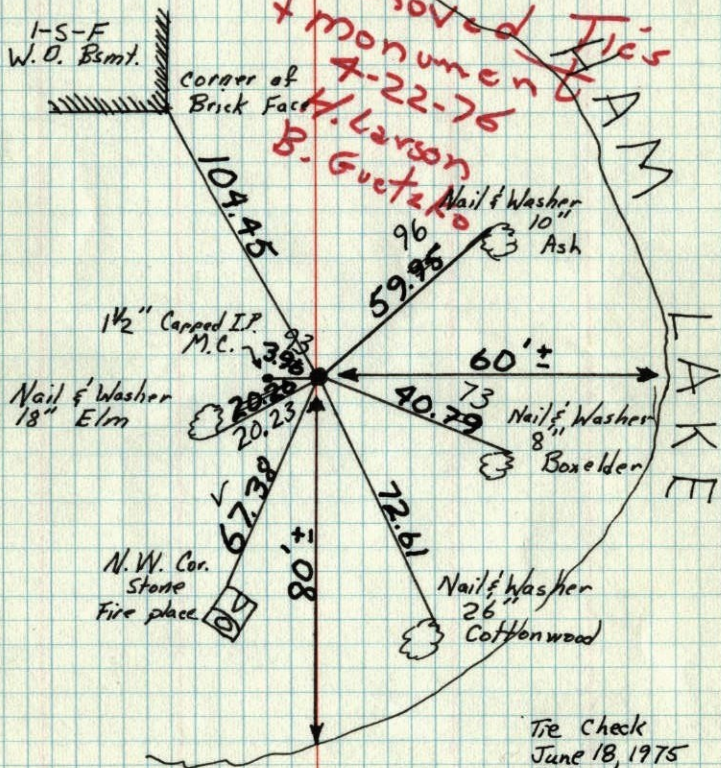 1-S-F
W.O. Bsmt.
corner of
Brick Face
Ties
+ monument
4-22-76
H. Larson
B. Guetzko
HAM
LAKE
104.45
Nail & Washer
10"
Ash
96
59.95
1½" Capped I.P.
M.C.
93
3.96
60'±
Nail & Washer
18" Elm
20.20
20.23
73
40.79
Nail & Washer
8"
Boxelder
67.38
80'±
72.61
N.W. Cor.
Stone
Fire place
Nail & Washer
26"
Cottonwood
Tie Check
June 18, 1975